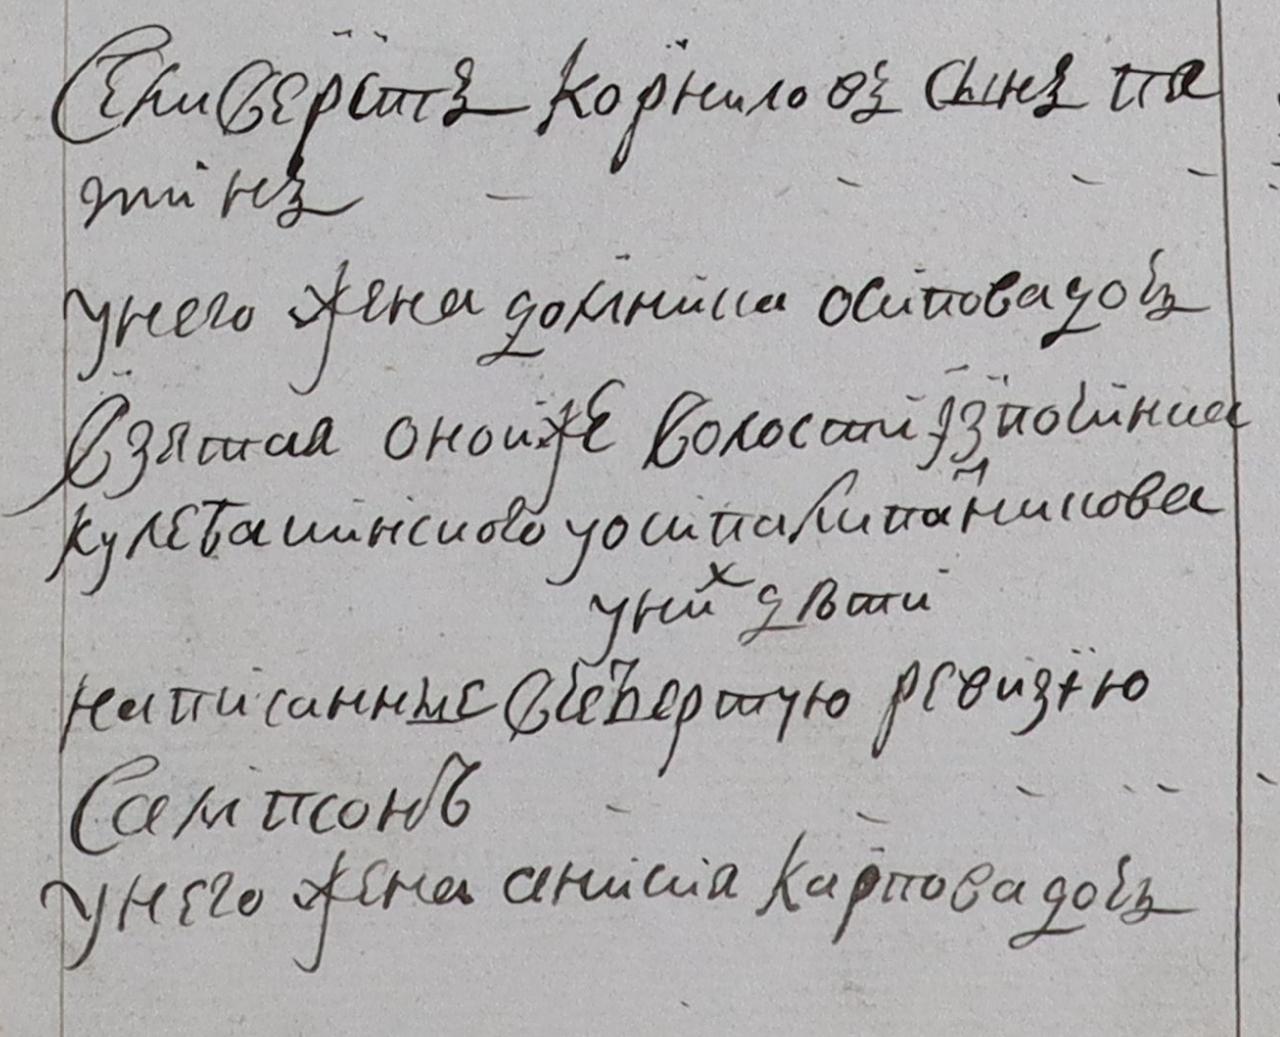 Селиверстъ Корниловъ сынъ па
тїнъ
унего жена домнїка осїповадочь
взятая оноиже волостї їзпочїнка
кулебашїнского уосїпа липатникова
уних дѣти
напїсанные вчетвертую ревизїю
Сампсонъ
унего жена анїсїя карповадочь